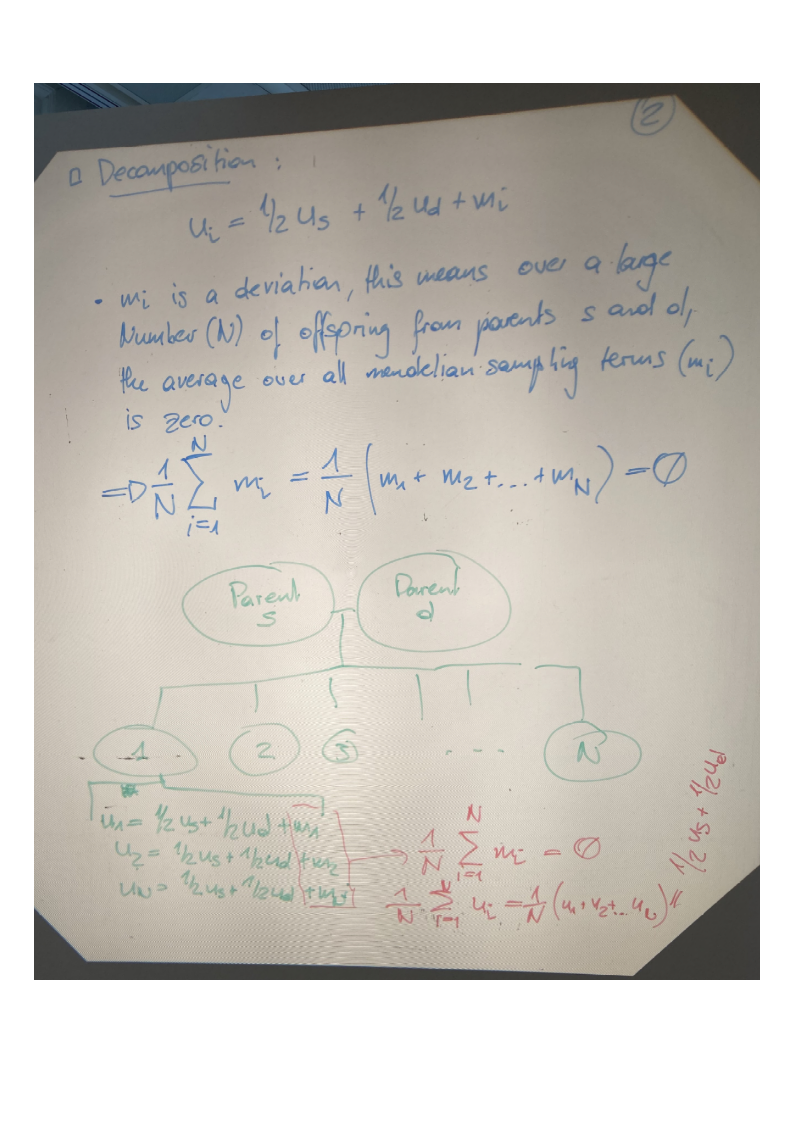 2
□ Decomposition :
u_i = 1/2 u_s + 1/2 u_d + m_i
• m_i is a deviation, this means over a large
Number (N) of offspring from parents s and d,
the average over all mendelian sampling terms (m_i)
is zero.
=> 1/N ∑_{i=1}^{N} m_i = 1/N (m_1 + m_2 + ... + m_N) = ∅
Parent s
Parent d
1 2 3 - - - N
u_1 = 1/2 u_s + 1/2 u_d + m_1
u_2 = 1/2 u_s + 1/2 u_d + m_2
u_N = 1/2 u_s + 1/2 u_d + m_N
1/N ∑_{i=1}^{N} m_i = ∅
1/N ∑_{i=1}^{N} u_i = 1/N (u_1 + u_2 + ... u_N) = 1/2 u_s + 1/2 u_d